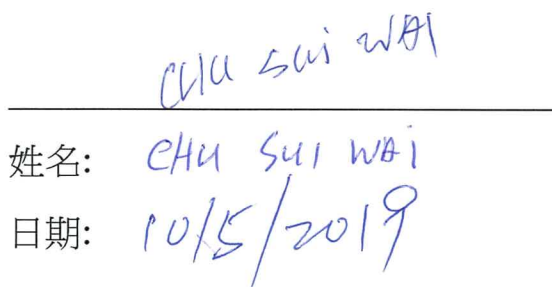 CHU SUI WAI
姓名: CHU SUI WAI
日期: 10/5/2019